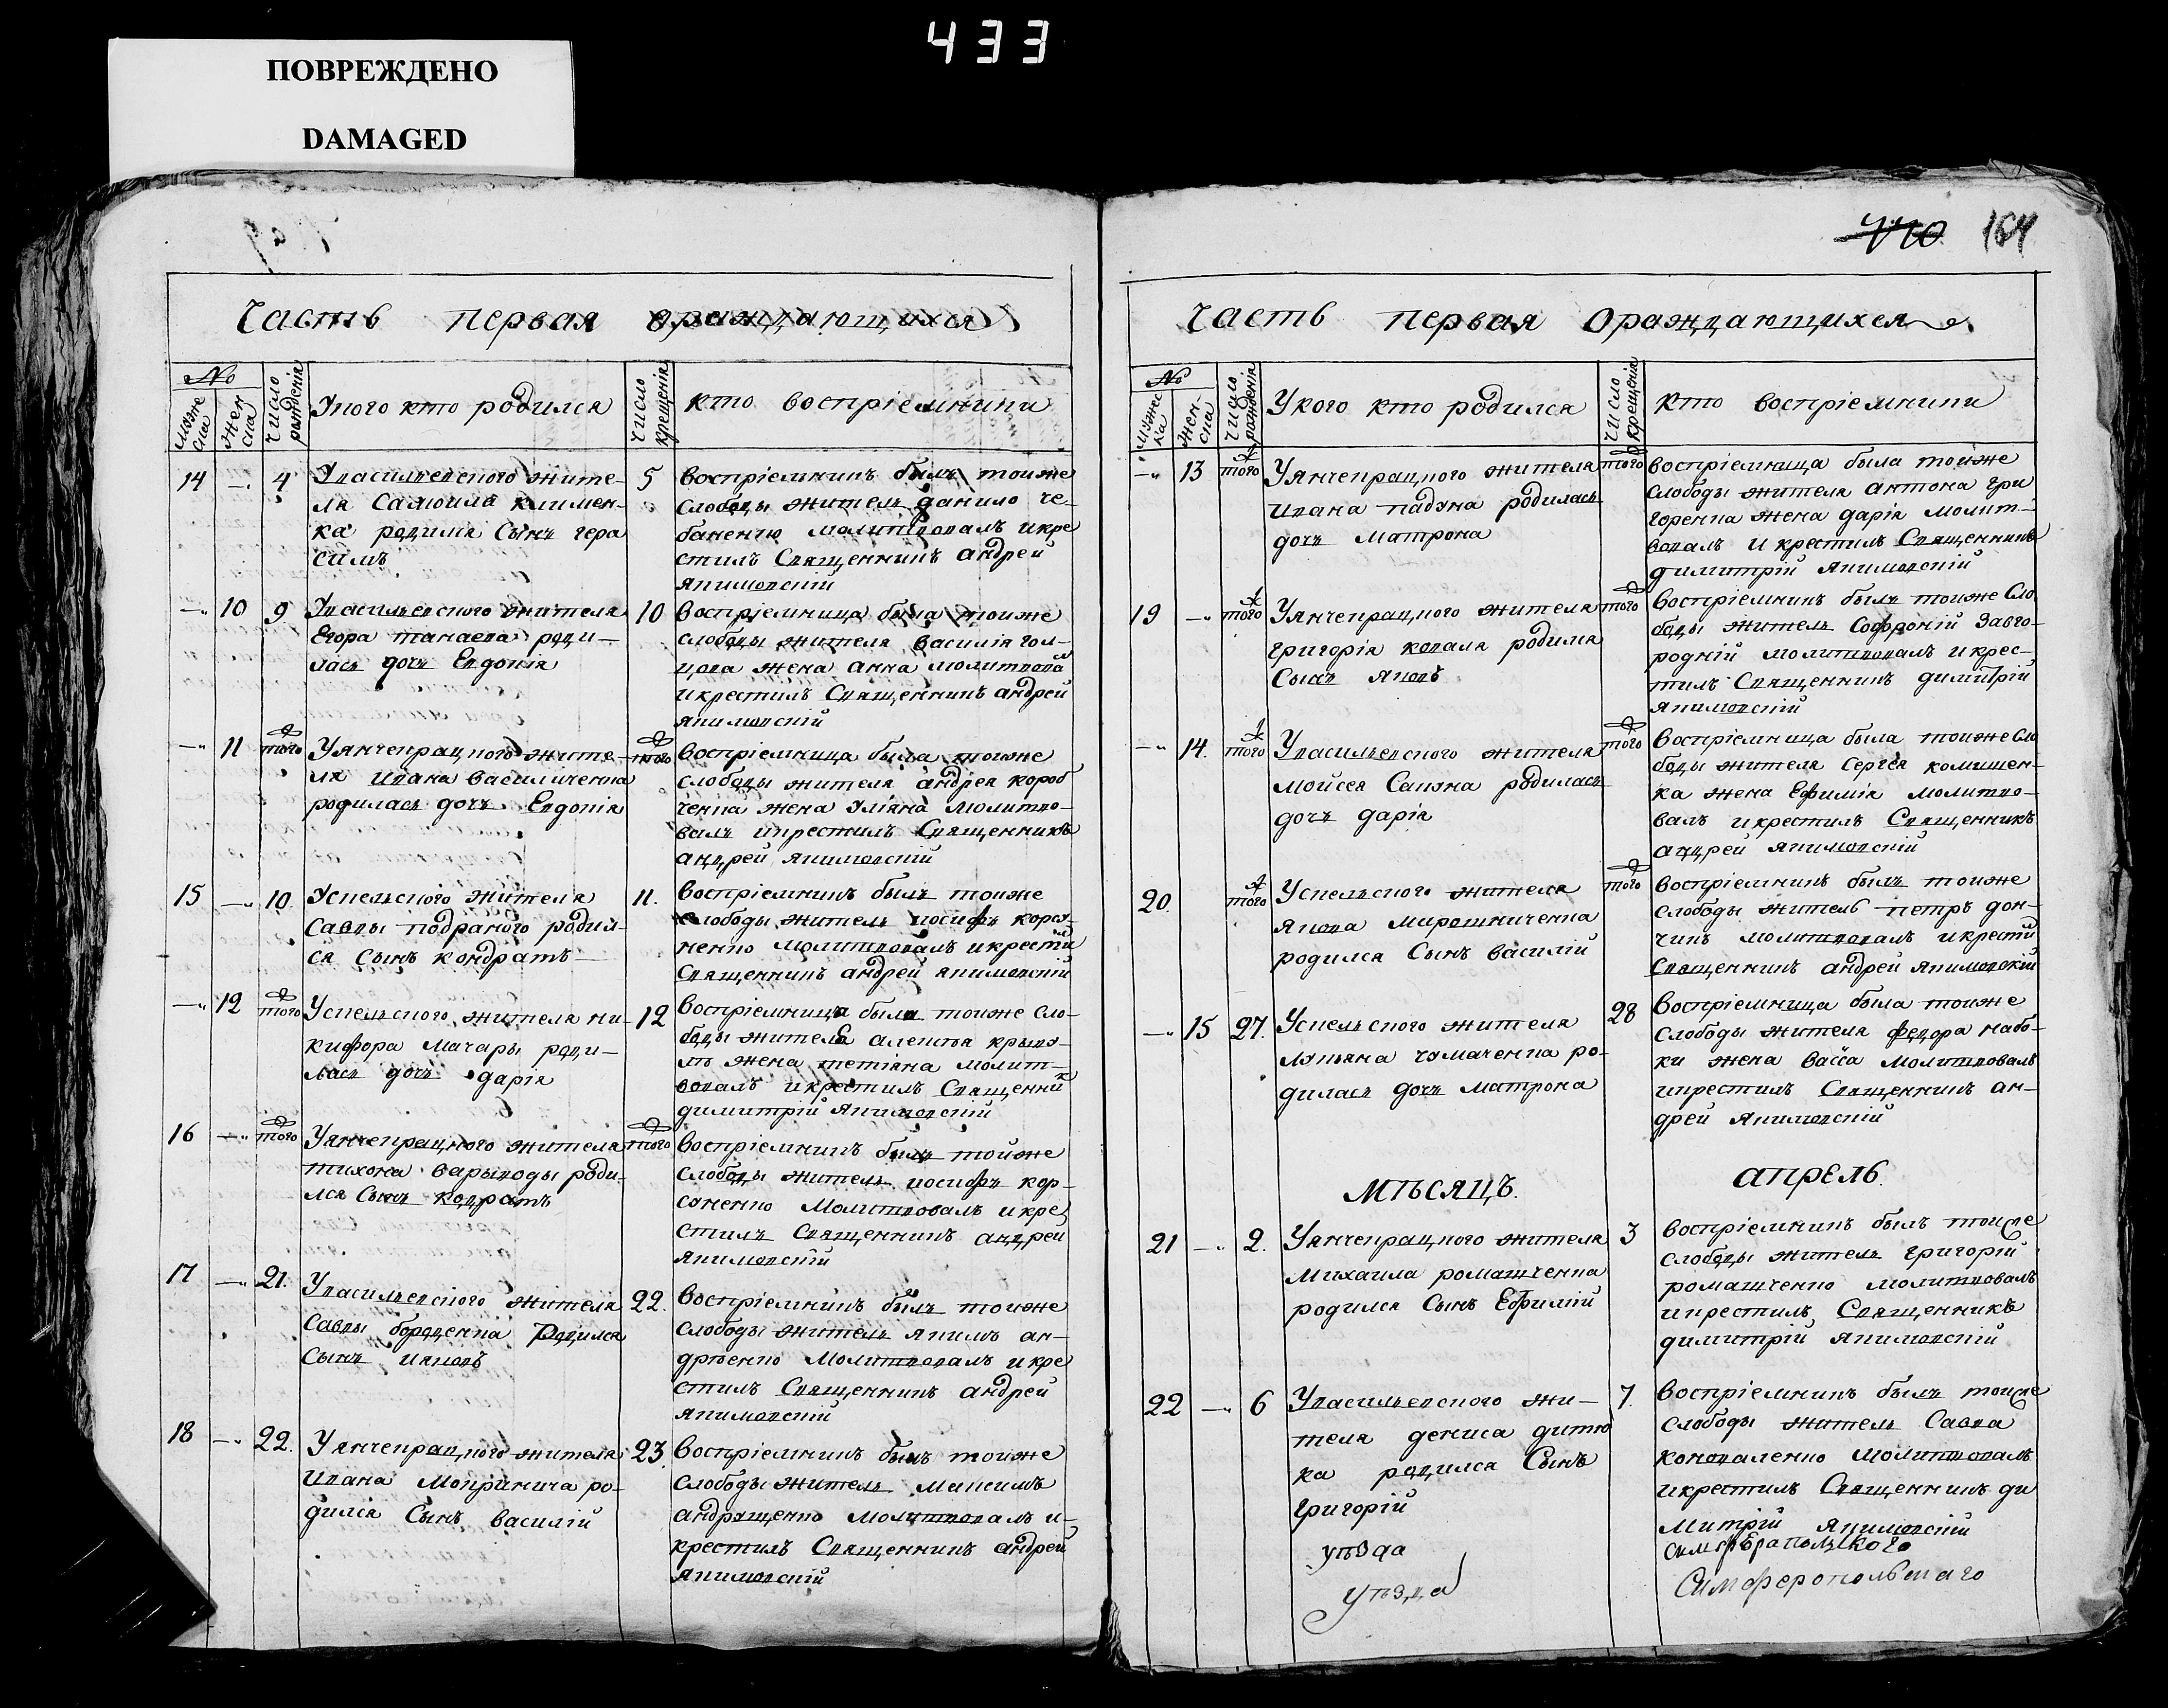 433
ПОВРЕЖДЕНО
DAMAGED
Часть первая ораждающихся
№
Мужеска
Женска
Число рождения
Укого кто родился
Число крещенія
кто воспріемники
14 —„ 4
Увасильевского жите-
ля Самоила клименка родился Сынъ гера
симъ
5
воспріемникъ былъ тоиже
Слободы житель данило че-
баненко молитвовалъ икре
стилъ Священникъ андрей
якимовскій
—„ 10 9
Увасильевского жителя
Егора танаева роди—
лась дочь Евдокія
10
воспріемница была тоиже
слободы жителя василія гол-
цова жена анна молитвовал
икрестилъ Священникъ андрей
якимовскій
—„ 11 того
Уянчекрацкого жите-
ля Ивана василиченка
родилась дочь Евдокія
того
воспріемница была тоиже
Слободы жителя андрея короб
ченка жена Уліяна Молитво-
валъ икрестилъ Священникъ
андрей якимовскій
15 —„ 10.
Успельского жителя
Саввы подраного родил-
ся Сынъ кондратъ—
11.
воспріемникъ былъ тоиже
слободы житель иосифъ корся-
ненко молитвовалъ икрестил
Священникъ андрей якимовскій
—„ 12 того
Успельского жителя ни-
кифора Мачары роди—
лась дочь дарія
12
воспріемница была тоиже Сло-
боды жителя алексѣя
жена тетіяна молит—
вовалъ икрестилъ Священник
димитрій якимовскій
16 —„ того
Уянчекрацкого жителя
тихона варыводы роди-
лся Сынъ кодратъ
того
воспріемникъ былъ тоиже
Слободы житель иосифъ кор-
сяненко Молитвовалъ икре
стилъ Священникъ андрей
якимовскій
17 —„ 21.
Увасильевского жителя
Саввы бороденка Родился
Сынъ ияковъ
22.
воспріемникъ былъ тоиже
Слободы житель якимъ ан—
дрѣенко Молитвовалъ икре
стилъ Священникъ андрей
якимовскій
18 —„ 22.
Уянчекрацкого жителя
Ивана Мокринича ро-
дился Сынъ василій
23.
воспріемникъ былъ тоиже
Слободы житель Максимъ
андрященко Молитвовалъ и-
крестилъ Священникъ андрей
якимовскій
164
Часть первая Ораждающихся
№
Мужеска
Женска
Число рожденія
Укого кто родился
Число крещения
кто воспріемники
—„ 13 того
Уянчекрацкого жителя
Ивана падуна родилась
дочь Матрона
того
воспріемница была тоиже
Слободы жителя антона гри
горенка жена дарія Молит—
вовалъ и крестилъ Священникъ
димитрій якимовскій
19 —„ того
Уянчекрацкого жителя
григорія коваля родился
Сынъ яковъ
того
воспріемникъ былъ тоиже Сло
боды житель Софроній Завго-
родній молитвовалъ икрес-
тилъ Священникъ димитрій
якимовскій
—„ 14. того
Увасильевского жителя
мойсея Сапуна родилась
дочь дарія
того
воспріемница была тоиже Сло
боды жителя Сергѣя комишен-
ка жена Ефимія молитво—
валъ икрестилъ Священникъ
андрей якимовскій
20. того
Успельского жителя
якова Мирошниченка
родился Сынъ василій
того
воспріемникъ былъ тоиже
слободы житель петръ дон-
чикъ молитвовалъ икрестил
Священникъ андрей якимовскій
—„ 15 27.
Успельского жителя
лукьяна чумаченка ро-
дилась дочь матрона
28
воспріемница была тоиже
Слободы жителя федора набо-
ки жена васса Молитвовалъ
икрестилъ Священникъ ан—
дрей якимовскій
Мѣсяцъ. апрель.
21 —„ 2.
Уянчекрацкого жителя
Михаила ромашченка
родился Сынъ Ефимій
3
воспріемникъ былъ тоиже
Слободы житель григорій
ромашченко молитвовалъ
икрестилъ Священникъ
димитрій якимовскій
22 —„ 6
Увасильевского жи—
теля дениса дитю
ка родился Сынъ
григорій
7.
воспріемникъ былъ тоиже
Слободы житель Савва
коноваленко Молитвовалъ
икрестилъ Священникъ ди
митрій якимовскій
уѣзда
Симферопольского
уѣзда
Симферопольскаго